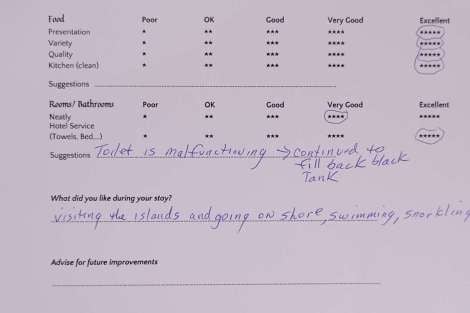 Food Poor OK Good Very Good Excellent
Presentation * ** *** **** *****
Variety * ** *** **** *****
Quality * ** *** **** *****
Kitchen (clean) * ** *** **** *****
Suggestions
Rooms/ Bathrooms Poor OK Good Very Good Excellent
Neatly * ** *** **** *****
Hotel Service
(Towels, Bed...) * ** *** **** *****
Suggestions Toilet is malfunctioning → continued to
fill back black
Tank
What did you like during your stay?
visiting the islands and going on shore, swimming, snorkling
Advise for future improvements